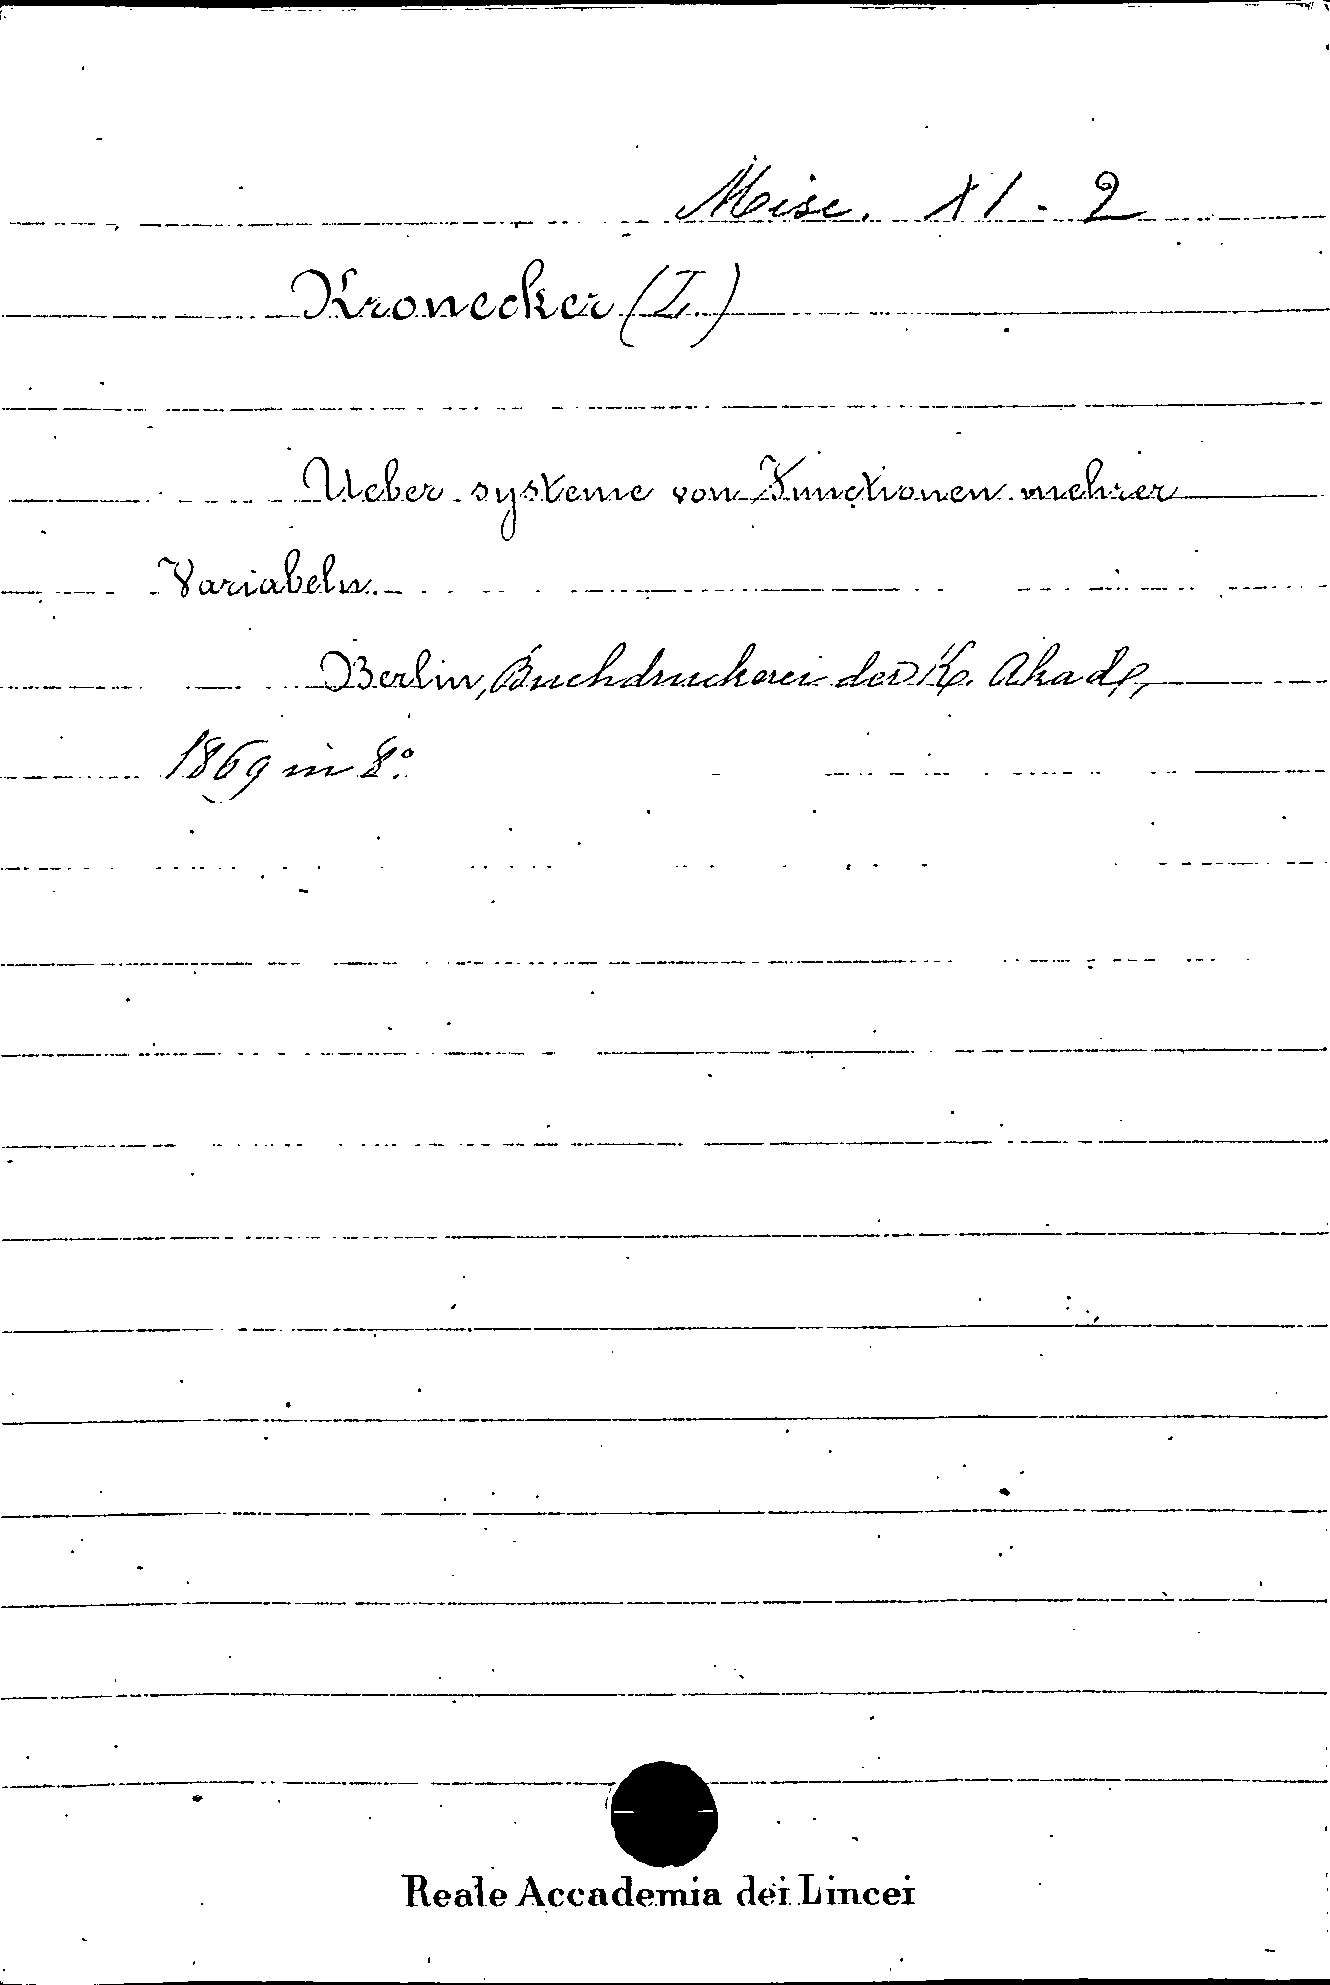 Misc. XI - 2
Kronecker (L.)
Ueber systeme von Functionen mehrer
Variabeln.
Berlin, Buchdruckerei der K. Akad,
1869 in 8°.
Reale Accademia dei Lincei